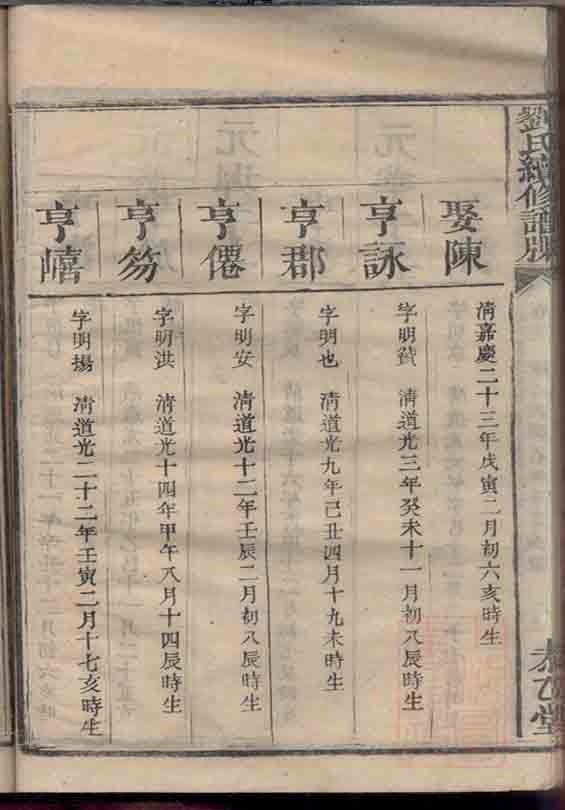 劉氏續修譜牒
娶陳
清嘉慶二十三年戊寅二月初六亥時生
亨詠
字明贊 清道光三年癸未十一月初八辰時生
亨郡
字明也 清道光九年己丑四月十九未時生
亨僊
字明安 清道光十二年壬辰二月初八辰時生
亨笏
字明洪 清道光十四年甲午八月十四辰時生
亨嶖
字明揚 清道光二十二年壬寅二月十七亥時生
堂